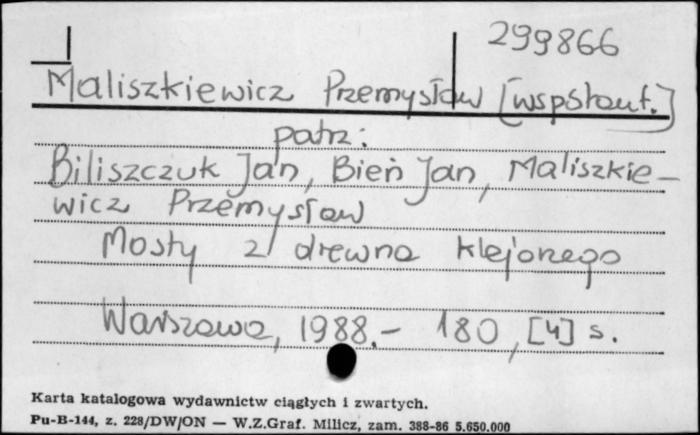 299866
Maliszkiewicz Przemysław [współaut.]
patrz:
Biliszczuk Jan, Bień Jan, Maliszkie-
wicz Przemysław
Mosty z drewna klejonego
Warszawa, 1988.- 180, [4] s.
Karta katalogowa wydawnictw ciągłych i zwartych.
Pu-B-144, z. 228/DW/ON — W.Z.Graf. Milicz, zam. 388-86 5.650.000